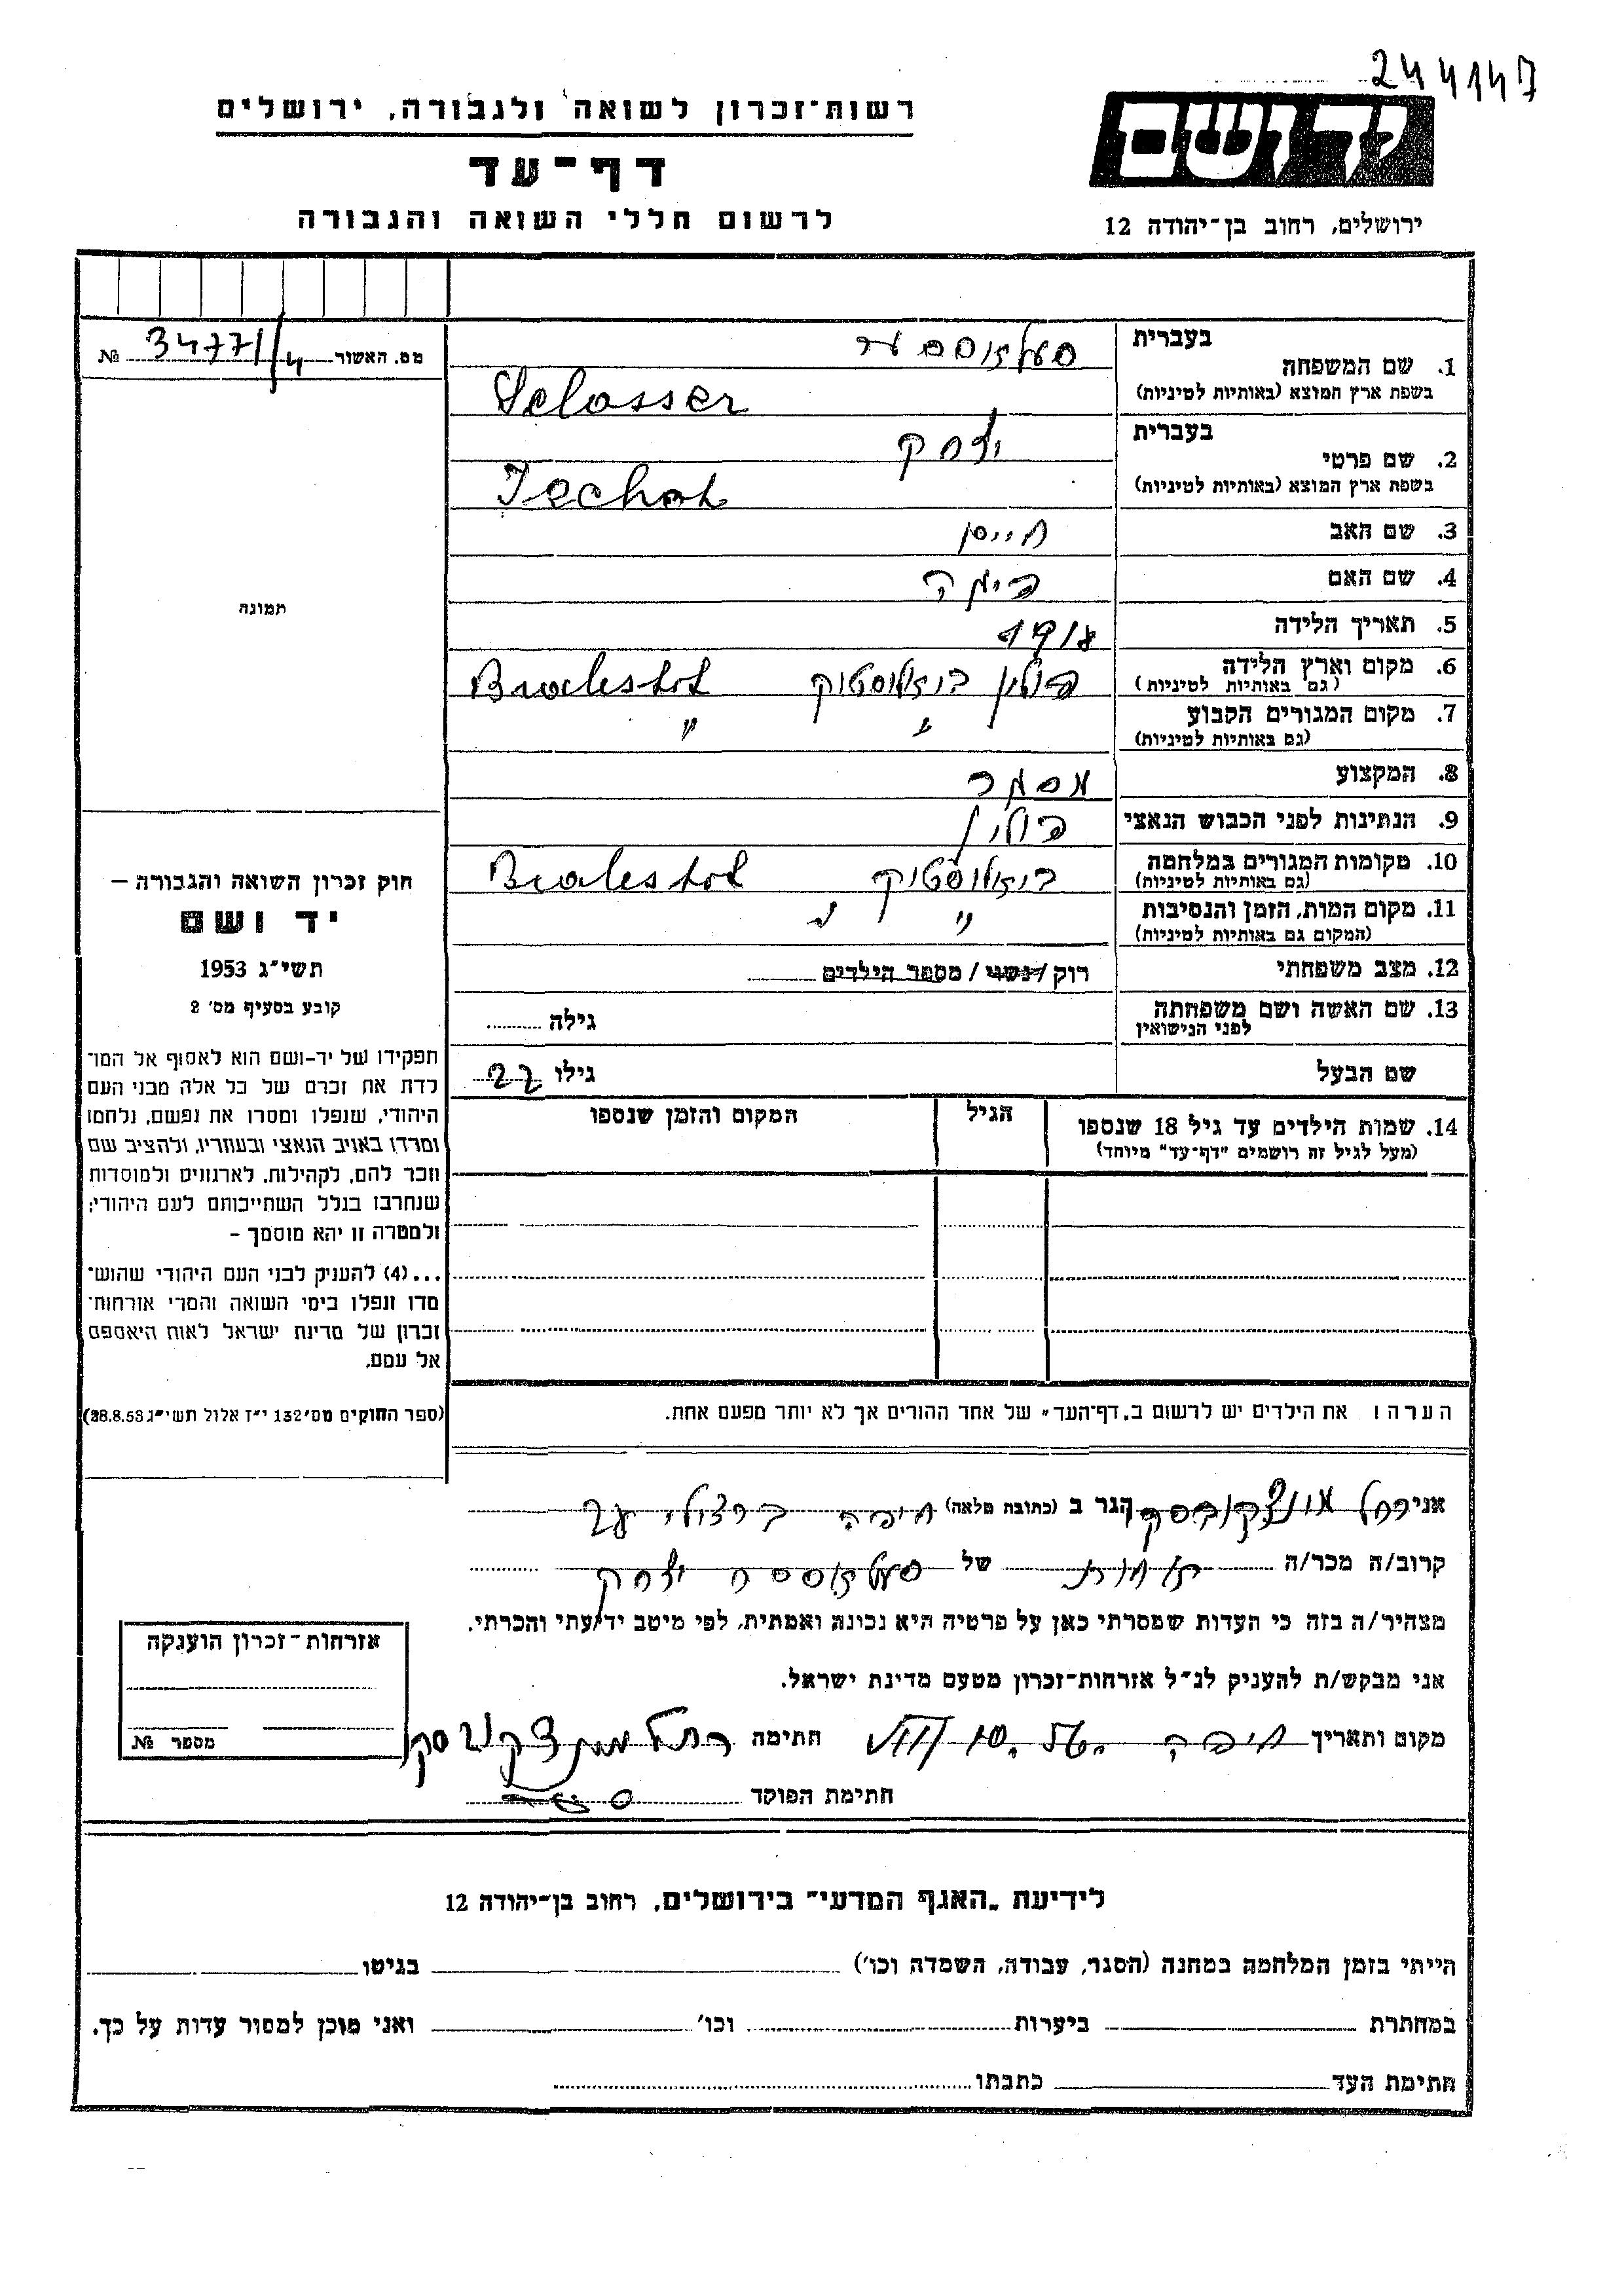 244147
רשות־זכרון לשואה ולגבורה, ירושלים
דף־עד
לרשום חללי השואה והגבורה
יד ושם
ירושלים, רחוב בן־יהודה 12
מס. האשור 3477/4 №
תמונה
חוק זכרון השואה והגבורה –
יד ושם
תשי״ג 1953
קובע בסעיף מס׳ 2
תפקידו של יד-ושם הוא לאסוף אל המו־
לדת את זכרם של כל אלה מבני העם
היהודי, שנפלו ומסרו את נפשם, נלחמו
ומרדו באויב הנאצי ובעוזריו, ולהציב שם
וזכר להם, לקהילות, לארגונים ולמוסדות
שנחרבו בגלל השתייכותם לעם היהודי;
ולמטרה זו יהא מוסמך –
...(4) להעניק לבני העם היהודי שהוש־
מדו ונפלו בימי השואה והמרי אזרחות־
זכרון של מדינת ישראל לאות היאספם
אל עמם.
(ספר החוקים מס׳ 132 י״ז אלול תשי״ג 28.8.53)
בעברית
1. שם המשפחה
(בשפת ארץ המוצא (באותיות לטיניות) Selosser
בעברית יצחק
2. שם פרטי
בשפת ארץ המוצא (באותיות לטיניות)
3. שם האב
4. שם האם
5. תאריך הלידה 1918
6. מקום וארץ הלידה פולין ביאלוסטוק Bialestok
(גם באותיות לטיניות)
7. מקום המגורים הקבוע ״ ״
(גם באותיות לטיניות)
8. המקצוע מסגר
9. הנתינות לפני הכבוש הנאצי פולין
10. מקומות המגורים במלחמה ביאלוסטוק Bialestok
(גם באותיות לטיניות)
11. מקום המות, הזמן והנסיבות ״ ״
(המקום גם באותיות לטיניות)
12. מצב משפחתי רוק / נשוי / מספר הילדים
13. שם האשה ושם משפחתה גילה
לפני הנישואין
שם הבעל גילו 22
14. שמות הילדים עד גיל 18 שנספו הגיל המקום והזמן שנספו
(מעל לגיל זה רושמים ״דף־עד״ מיוחד)
הערה ו את הילדים יש לרשום ב„דף־העד״ של אחד ההורים אך לא יותר מפעם אחת.
אני רחל הגר ב (כתובת מלאה) חיפה ברזילי
קרוב/ה מכר/ה אחות של יצחק
מצהיר/ה בזה כי העדות שמסרתי כאן על פרטיה היא נכונה ואמתית, לפי מיטב ידיעתי והכרתי.
אני מבקש/ת להעניק לנ״ל אזרחות־זכרון מטעם מדינת ישראל.
מקום ותאריך חיפה 10.VII.56 חתימה רחל
חתימת הפוקד
אזרחות־זכרון הוענקה
מספר №
לידיעת „האגף המדעי״ בירושלים, רחוב בן־יהודה 12
הייתי בזמן המלחמה במחנה (הסגר, עבודה, השמדה וכו׳) בגיטו
במחתרת ביערות וכו׳ ואני מוכן למסור עדות על כך.
חתימת העד כתבתו